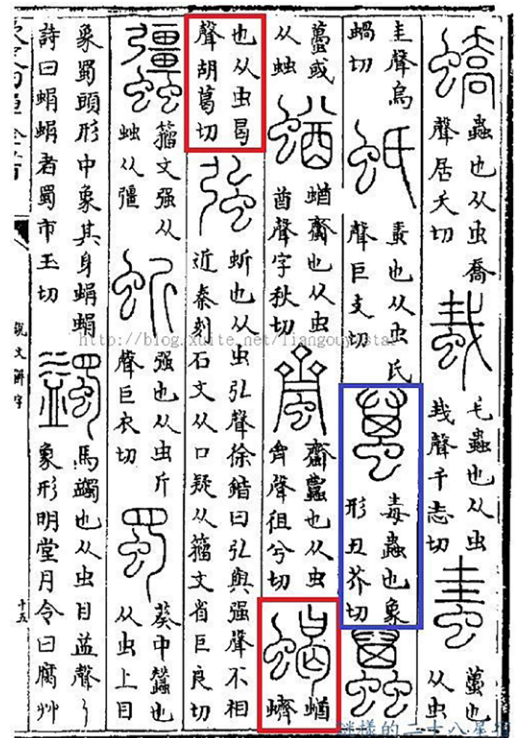 蟜
蟲也从虫喬
聲居夭切
蛓
毛蟲也从虫
𢦏聲千志切
蠆也
从虫
圭聲烏
蝸切
蚔
畫也从虫氏
聲巨支切
毒蟲也象
形丑芥切
蠆或
从䖵
蝤
蝤齏也从虫
酋聲字秋切
齏蠹也从虫
齊聲徂兮切
蝎
蝤
蠐
也从虫曷
聲胡葛切
強
蚚也从虫弘聲徐鍇曰弘與强聲不相
近秦刻石文从口疑从籀文省巨良切
籀文强从
䖵从彊
蚚
强也从虫斤
聲巨衣切
蜀
葵中蠶也
从虫上目
象蜀頭形中象其身蜎蜎
詩曰蜎蜎者蜀市玉切
蠲
馬蠲也从虫目益聲了
象形明堂月令曰腐艸
說文解字
十五